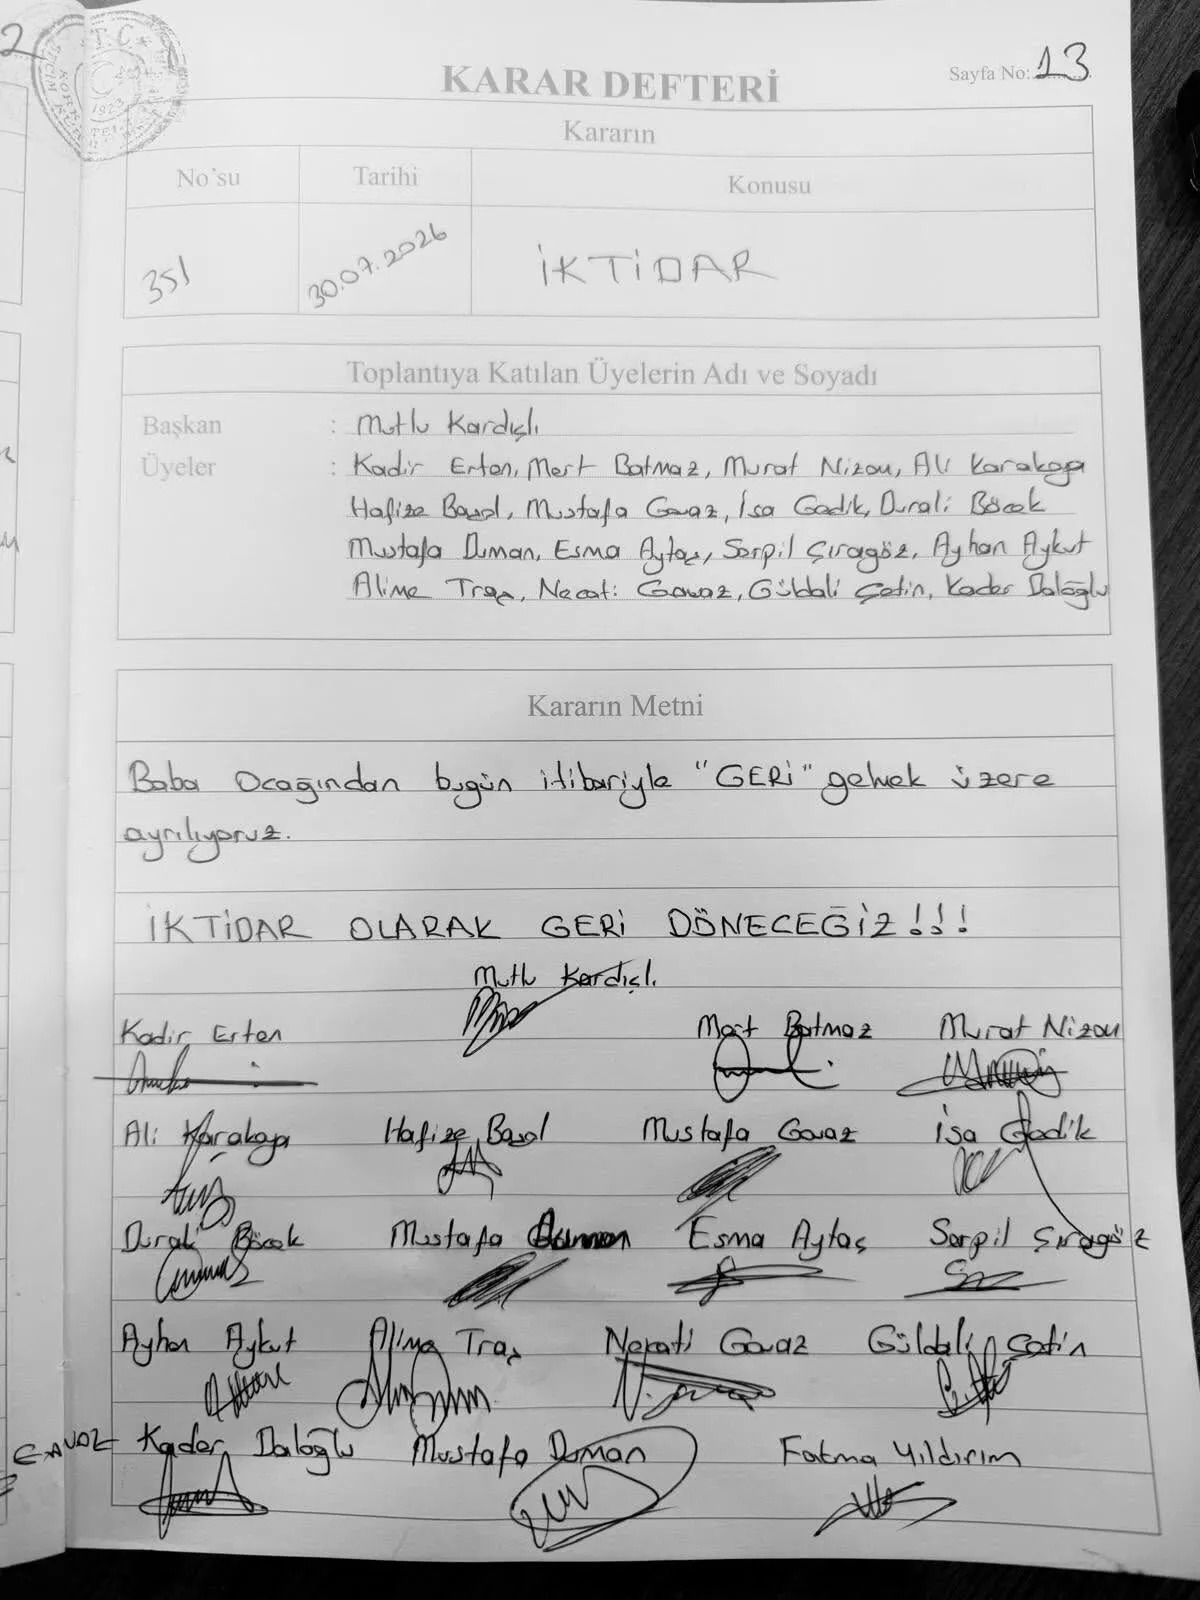 2
T.C.
1923
KARAR DEFTERİ
Sayfa No: 13
Kararın
No'su
Tarihi
Konusu
351
30.07.2026
İKTİDAR
Toplantıya Katılan Üyelerin Adı ve Soyadı
Başkan : Mutlu Kardişli
Üyeler : Kadir Erten, Mert Batmaz, Murat Nizam, Ali Karakaya
Hafize Basol, Mustafa Gavaz, İsa Gadik, Durali Böcek
Mustafa Duman, Esma Aytaç, Serpil Çıragöz, Ayhan Aykut
Alime Traş, Necati Gavaz, Güldali Çetin, Kader Daloğlu
Kararın Metni
Baba Ocağından bugün itibariyle "GERİ" gelmek üzere
ayrılıyoruz.
İKTİDAR OLARAK GERİ DÖNECEĞİZ!!!
Mutlu Kardişli
Kadir Erten Mert Batmaz Murat Nizam
Ali Karakaya Hafize Basol Mustafa Gavaz İsa Gadik
Durali Böcek Mustafa Esma Aytaç Serpil Çıragöz
Ayhan Aykut Alime Traş Necati Gavaz Güldali Çetin
Kader Daloğlu Mustafa Duman Fatma Yıldırım